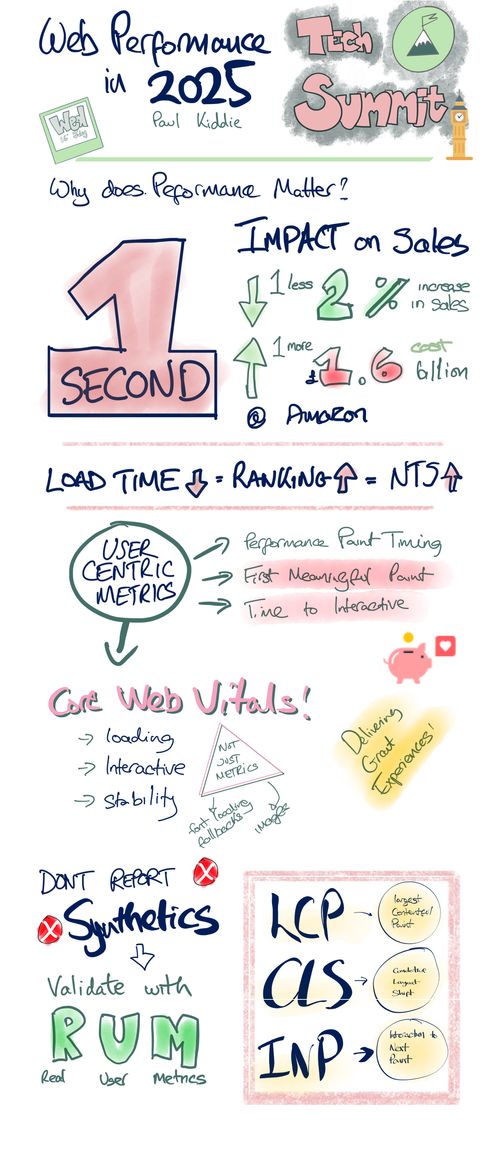 Web Performance
in 2025
Paul Kiddie
Tech
Summit
Why does Peformance Matter?
1
SECOND
IMPACT on Sales
1 less 2% increase
in sales
1 more £1.6 cost
billion
@ Amazon
LOAD TIME = RANKING = NTS
USER
CENTRIC
METRICS
Performance Paint Timing
First Meaningful Paint
Time to Interactive
Core Web Vitals!
loading
Interactive
stability
NOT
JUST
METRICS
font loading
fallbacks
images
Delivering
Great
Experiences!
DONT REPORT
Synthetics
Validate with
RUM
Real User Metrics
LCP
largest
Contentful
Paint
CLS
Cumulative
Layout
Shift
INP
Interaction to
Next
Paint